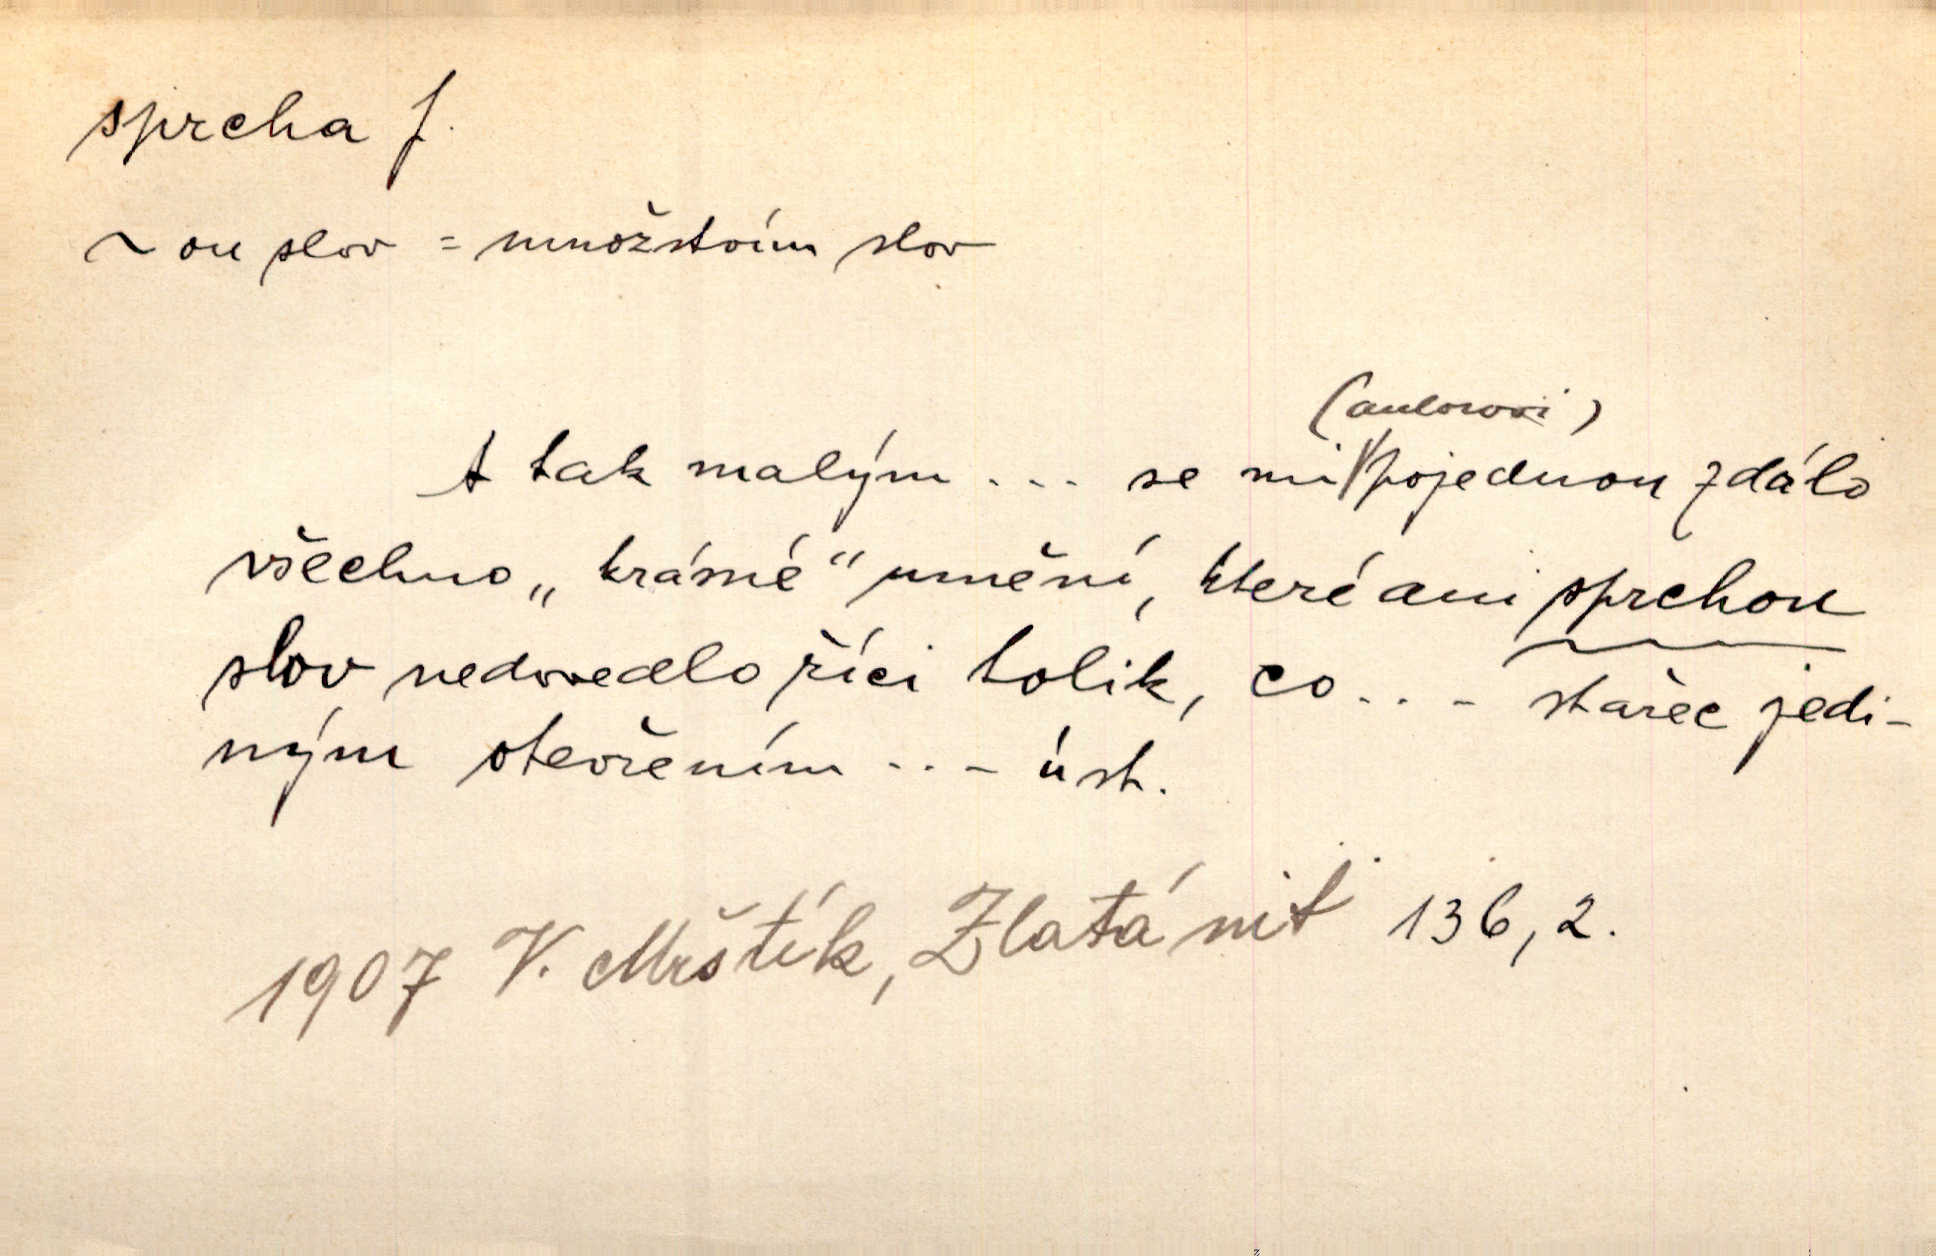 sprcha f.
~ou slov = množstvím slov
(autorovi)
A tak malým ... se mi pojednou zdálo
všechno „krásné“ umění, které ani sprchou
slov nedovedlo říci tolik, co ... stařec jedi-
ným otevřením ... úst.
1907 V. Mrštík, Zlatá nit 136, 2.